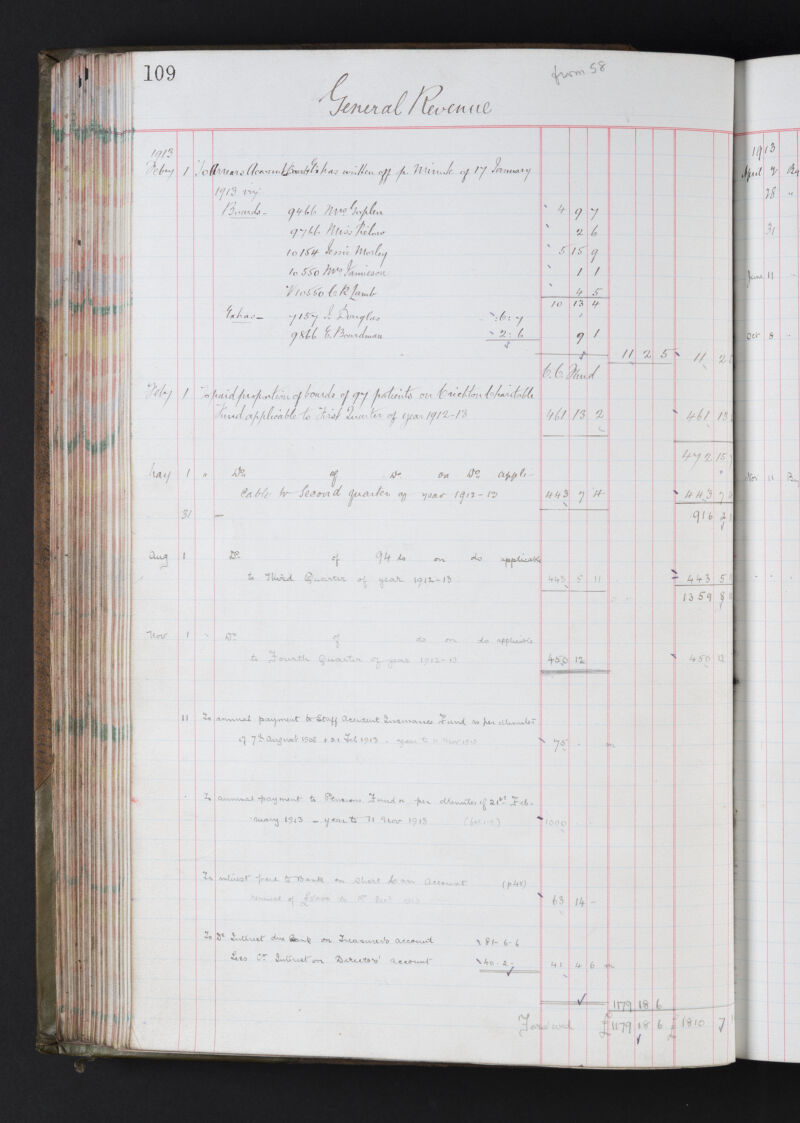 109
from 58
General Revenue
1913
Feby 1 To Arrears Account Boards & Extras written off p. Minute of 17 January
1913 viz
Boards - 9466 Mrs 4 9 7
9766 Miss 2 6
10154 Jessie Morley 5 15 9
10550 Mrs Jamieson 1 1
10550 C R Lamb 4 5
10 13 4
Extras - 7157 J. Douglas 6: 7
9866 E. Boardman 2: 6 9 1
11 2 5 11 2
C. C. Fund
Feby 1 To paid proportion of boards of 97 patients on Crichton Charitable
Fund applicable to First Quarter of year 1912-13 461 13 2 461 13
472 15
May 1 " Do. of Do on Do. appli-
cable to Second quarter of year 1912-13 443 7 4 443 7
31 — 916 2
Aug 1 Do. of 94 do on do applicable
to Third Quarter of year 1912-13 443 5 11 443 5
1359 8
Nov 1 " Do. of do on do applicable
to Fourth Quarter of year 1912-13 450 12 450 12
11 To annual payment to Staff Accident Insurance Fund as per Minutes
of 7th August 1908 & 21 Feb 1913 - year to 11 Nov 1913 75 -
To annual payment to Pensions Fund as per Minutes of 21st Feb-
ruary 1913 - year to 11 Nov 1913 1000
To interest paid to Bank on Short Loan Account
63 14 -
To Do Interest due Bank on Treasurer's account 81-6-6
Less Cr. Interest on Directors' account 40-2- 41 4 6
1179 18 6
Forward £ 1179 18 6 £ 1810 7
1913
April
28 "
31
June 11
Oct 8
Nov 11